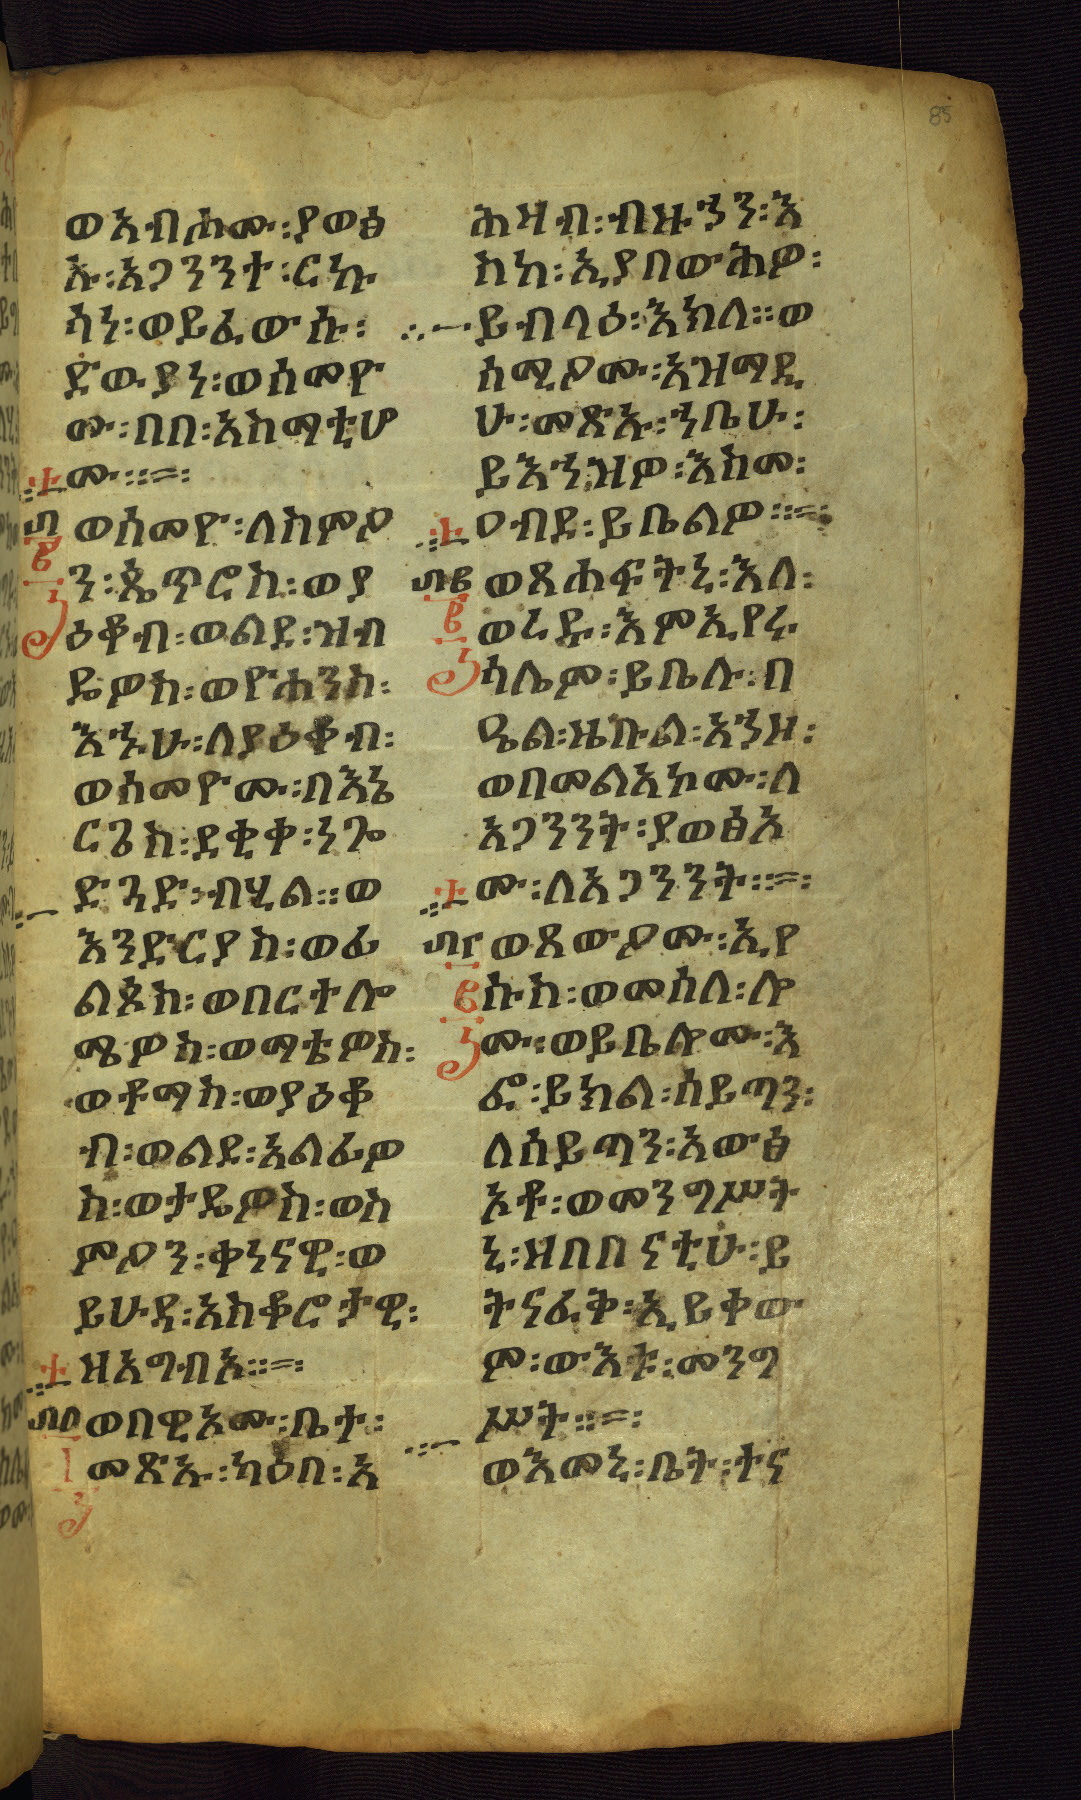 85
ወአብሐሙ፡ያወፅ
ኡ፡አጋንንተ፡ርኩ
ሳነ፡ወይፈውሱ፡
ድውያነ፡ወሰመዮ
ሙ፡በበ፡አስማቲሆ
ሙ፡፡=፡
ወሰመዮ፡ለስምዖ
ን፡ጴጥሮስ፡ወያ
ዕቆብ፡ወልደ፡ዝብ
ዴዎስ፡ወዮሐንስ፡
እኁሁ፡ለያዕቆብ፡
ወሰመዮሙ፡በእኔ
ርጌስ፡ደቂቀ፡ነጐ
ድጓድ፡ብሂል፡፡ወ
እንድርያስ፡ወፊ
ልጶስ፡ወበርተሎ
ሜዎስ፡ወማቴዎስ፡
ወቶማስ፡ወያዕቆ
ብ፡ወልደ፡እልፊዎ
ስ፡ወታዴዎስ፡ወስ
ምዖን፡ቀነናዊ፡ወ
ይሁዳ፡አስቆሮታዊ፡
ዘአግብኦ፡፡=፡
ወበዊኦሙ፡ቤተ፡
መጽኡ፡ካዕበ፡አ
ሕዛብ፡ብዙኃን፡እ
ስከ፡ኢያበውሕዎ፡
ይብላዕ፡እክለ፡፡ወ
ሰሚዖሙ፡አዝማዲ
ሁ፡መጽኡ፡ኀቤሁ፡
ይእኀዝዎ፡እስመ፡
ዐብደ፡ይቤልዎ፡፡=፡
ወጸሐፍትኒ፡እለ፡
ወረዱ፡እምኢየሩ
ሳሌም፡ይቤሉ፡በ
ዔል፡ዜቡል፡አኀዘ፡
ወበመልአኮሙ፡ለ
አጋንንት፡ያወፅአ
ሙ፡ለአጋንንት፡፡=፡
ወጸውዖሙ፡ኢየ
ሱስ፡ወመሰለ፡ሎ
ሙ፡ወይቤሎሙ፡እ
ፎ፡ይክል፡ሰይጣን፡
ለሰይጣን፡አውፅ
አቶ፡ወመንግሥት
ኒ፡ዘበበናቲሁ፡ይ
ትናፈቅ፡ኢይቀው
ም፡ውእቱ፡መንግ
ሥት፡፡=፡
ወእመኒ፡ቤት፡ተና